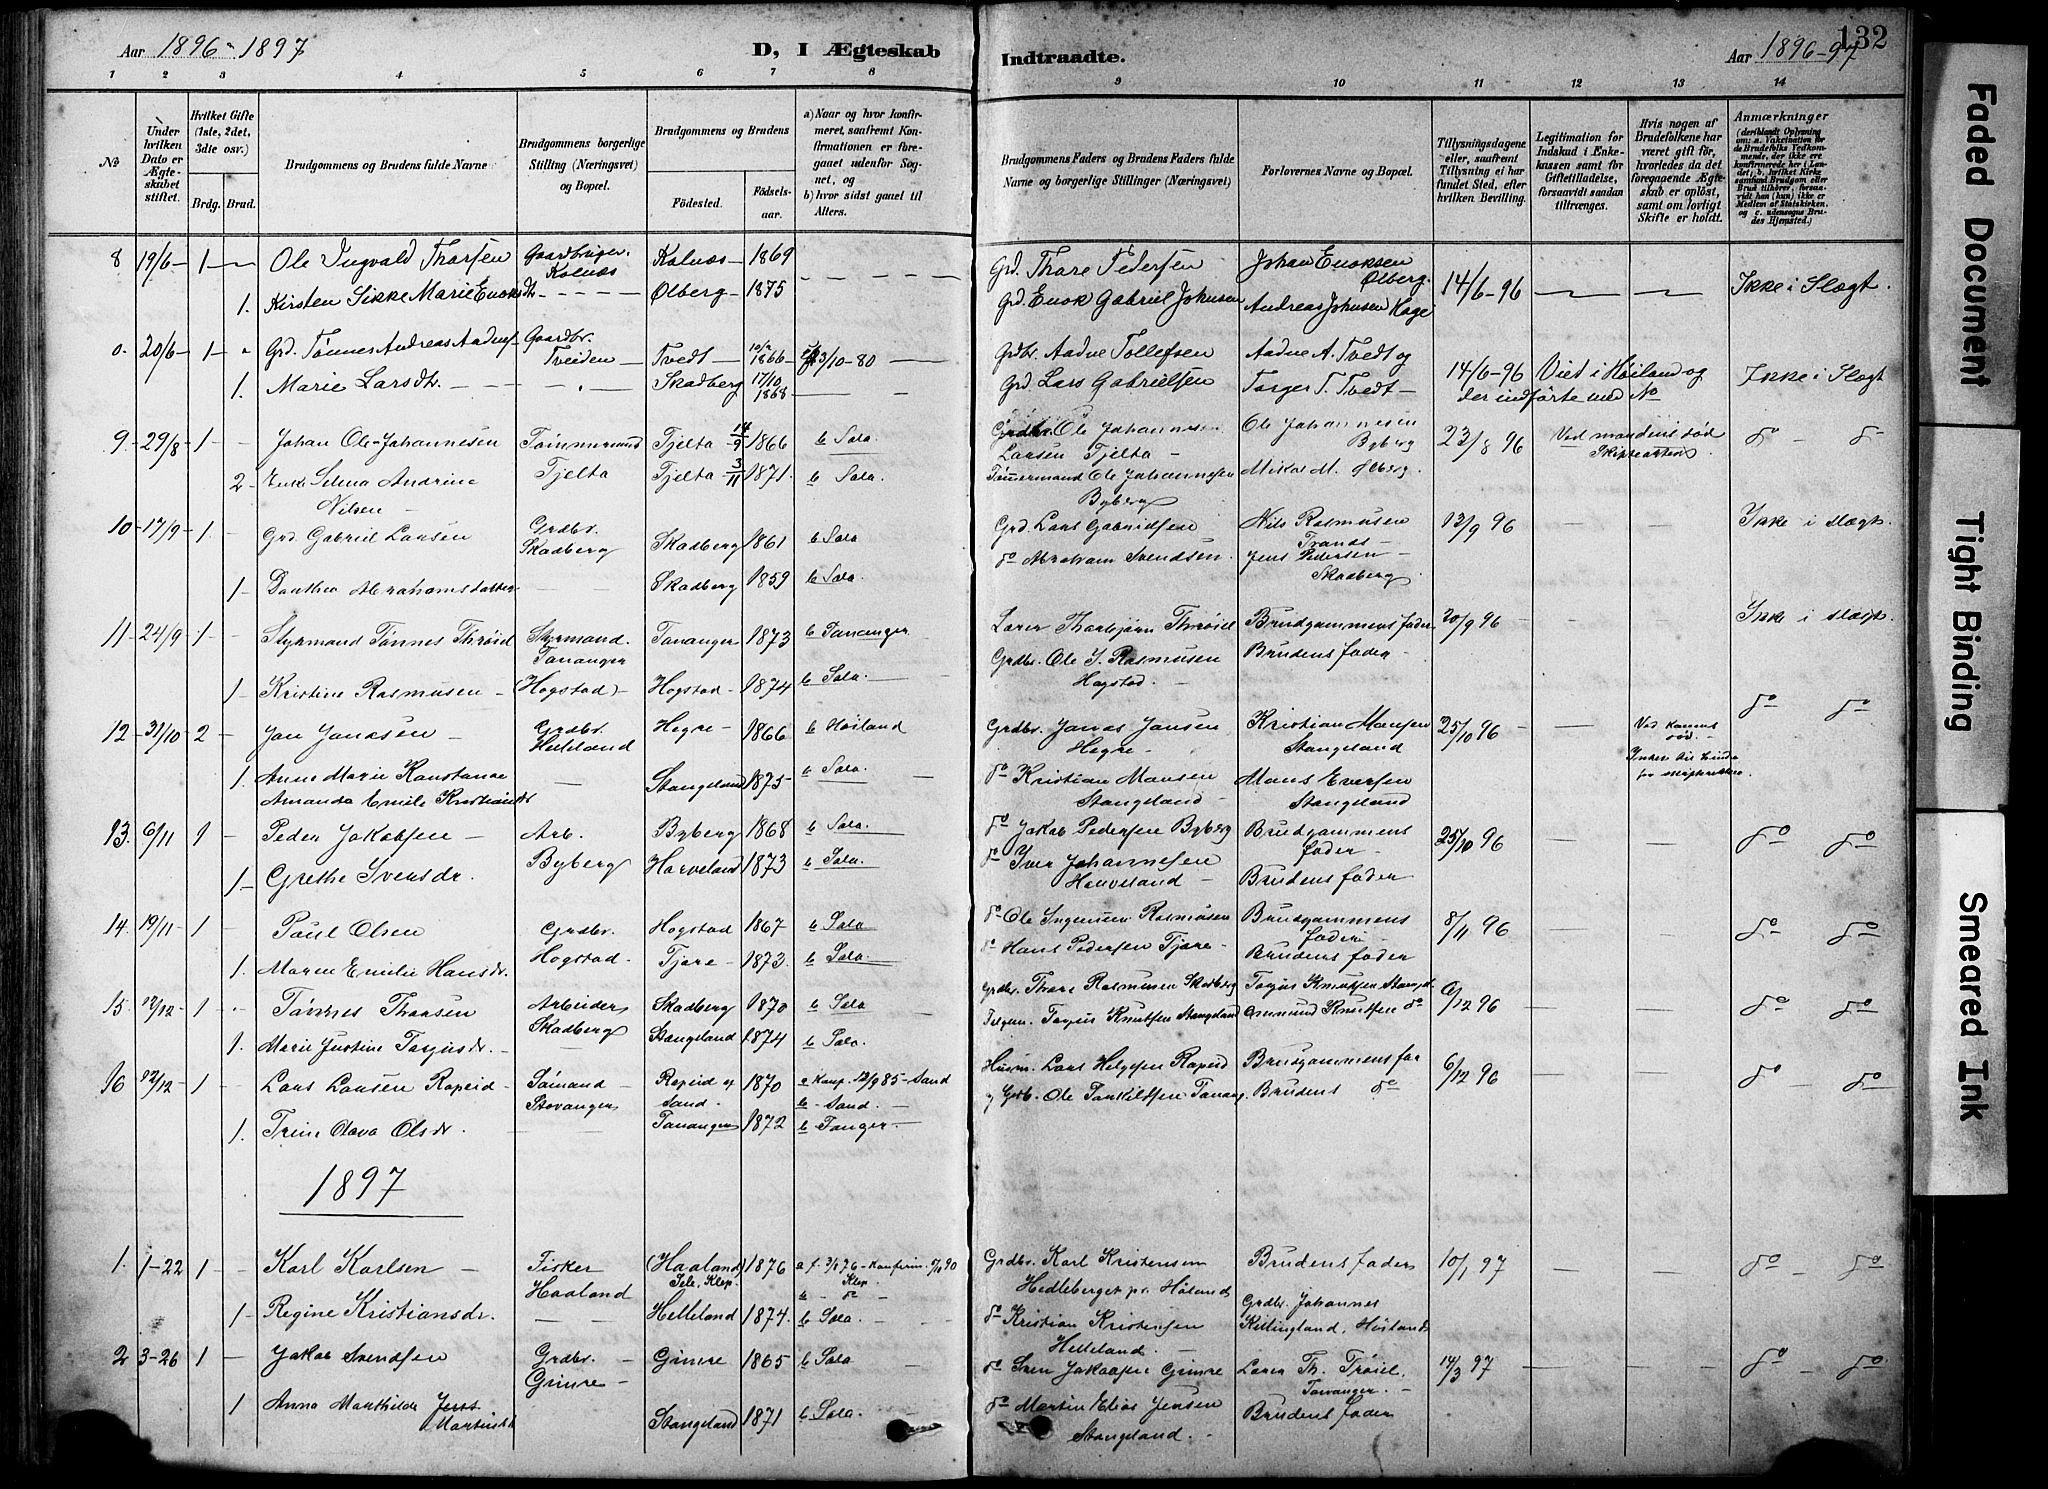 Aar 1896-1897
D, I Ægteskab
1 2 3 4 5 6 7 8
No
Under hvilken Dato er Ægteskabet stiftet.
Hvilket Gifte (1ste, 2det, 3die osv.)
Brdg. Brud.
Brudgommens og Brudens fulde Navne
Brudgommens borgerlige Stilling (Næringsvei) og Bopæl.
Brudgommens og Brudens
Födested.
Födselsaar.
a) Naar og hvor konfirmeret, saafremt Konfirmationen er foregaaet udenfor Sognet, og
b) hvor sidst gaaet til Alters.
8 19/6 - 1 - Ole Ingvald Thorsen Gaardbruger Kolnæs Kolnæs - 1869
1. Kirsten Sikke Marie Enoksdtr. Ølberg - 1875
0. 20/6 - 1 - Grd. Tønnes Andreas Aadnes Gaardbr. Tveiden Tvedt - 1866 3/10-80
1. Marie Larsdtr. Skadberg 17/10 1868
9 - 29/8 - 1 - Johan Ole Johannesen Tømmermand Tjelta Tjelta 14/9 1866 b Sola
2 - Enke Selma Andrine Nilsen Tjelta 3/11 1871. b Sola
10 - 17/9 - 1 - Grd. Gabriel Larsen Grdbr. Skadberg Skadberg 1861 b Sola
1 - Dorthea Abrahamsdatter Skadberg 1859 b Sola
11 - 24/9 - 1 - Styrmand Tønnes Thrøiel Styrmand. Tananger Tananger 1873 b Tananger
1 - Kristine Rasmusen - (Hogstad) - Hogstad - 1874 b Sola.
12 - 31/10 - 2 - Jan Janssen - Grdbr. Helleland Hegre - 1866 b Høiland
1. Anne Marie Konstanse Amanda Emilie Kristiansdr Stangeland 1875 b Sola.
13. 6/11 1 - Peder Jakobsen - Arb. Byberg Byberg 1868 b Sola.
1 - Grethe Svensdr. Harveland 1873 b Sola.
14. 19/11 1 Paul Olsen Grdbr. Hogstad. Hogstad 1867 b Sola
1. Maren Emilie Hansdr. Tjore - 1873. b Sola.
15. 12/12 1 Tønnes Thorsen Arbeider Skadberg Skadberg 1870 b Sola
1. Marie Justine Torjusdr. Stangeland 1874 b Sola.
16 12/12 1 Lars Larsen Ropeid - Sømand - Stavanger Ropeid af Sand. 1870 a Konf. 12/9 85 - Sand b - Sand. -
1. Trine Olava Olsdr. Tananger 1872 b Tanger -
1897
1. 1-22 1 Karl Karlsen - Fisker Haaland (Haaland) Sele. Klep. 1876 a f. 3/1 76 - Konfirm. 5/10 90 Klep
1 Regine Kristiansdr. Helleland 1874. b Sola -
2 3-26 1 Jakob Svendsen Grdbr. Gimre - Gimre 1865 b Sola
1 Anna Marthilde Jens Martinsdtr. Stangeland 1871 b Sola.
132
Indtraadte.
Aar 1896-97
9 10 11 12 13 14
Brudgommens Faders og Brudens Faders fulde Navne og borgerlige Stillinger (Næringsvei)
Forlovernes Navne og Bopæl.
Tillysningsdagene eller, saafremt Tillysning ei har fundet Sted, efter hvilken Bevilling.
Legitimation for Indskud i Enkekassen samt for Giftetilladelse, forsaavidt saadan tiltrænges.
Hvis nogen af Brudefolkene har været gift för, hvorledes da det foregaaende Ægteskab er oplöst, samt om lovligt Skifte er holdt.
Anmærkninger (deriblandt Oplysning om: a. Vakcination for de Brudefolks Vedkommende, der ikke ere konfirmerede her i Landet; b. hvilket Kirkesamfund Brudgom eller Brud tilhörer, forsaavidt han (hun) ikke er Medlem af Statskirken, og c. udensogns Brudes Hjemsted.)
Grd. Thore Pedersen Johan Enoksen Ølberg.
Grd. Enok Gabriel Johnsen Andreas Johnsen Hage 14/6-96 Ikke i Slægt.
Grdbr. Aadne Tollefsen Aadne A. Tvedt og
Grd. Lars Gabrielsen Torger T. Tvedt - 14/6-96 Viet i Høiland og der indførte med No Ikke i Slægt
Grdbr. Ole Johannes Larsen Tjelta - Ole Johannesen Byberg 23/8 96 Ved mandens død Skifteattest do - do
Tømmermand Ole Johannesen Byberg Mikal M. Ølberg.
Grd. Lars Gabrielsen Nils Rasmusen Trands - 13/9 96 Ikke i slægt.
do Abraham Svendsen. Jens Pedersen - Skadberg
Lærer Thorbjørn Thrøiel Brudgommens fader 20/9 96 Ikke i slægt.
Grdbr. Ole S. Rasmusen Hogstad. - Brudens fader -
Grdbr. Jonas Jansen Hegre - Kristian Monsen Stangeland 25/10 96 Ved konens død. do do
do Kristian Monsen Stangeland - Mons Eversen Stangeland
do Jakob Pedersen Byberg Brudgommens fader - 25/10 96 do do
do Iver Johannesen Harveland - Brudens fader
do Ole Ingemun Rasmusen Brudgommens fader 8/11 96 do do
do Hans Pedersen Tjore - Brudens fader
Grdbr. Thore Rasmusen Skadberg Torjus Knutsen Stangel. 6/12 96 do do
Torjus Knutsen Stangeland Gunmund Knutsen do
Husm. Lars Helgesen Ropeid Brudgommens far 6/12 96 do do
og Grdb. Ole Tarkildsen Tanang. Brudens do
Grdbr. Karl Kristensen Hedleberget pr. Høiland Brudens fader 10/1 97 do - do
do Kristian Kristensen Helleland. - Grdbr. Johannes Kellingland, Høiland
do Sven Jakobsen Gimre Lærer Th. Trøiel, Tananger. - 14/3 97 do - do
do Martin Elias Jensen Stangeland. - Brudens fader
Faded Document
Tight Binding
Smeared Ink